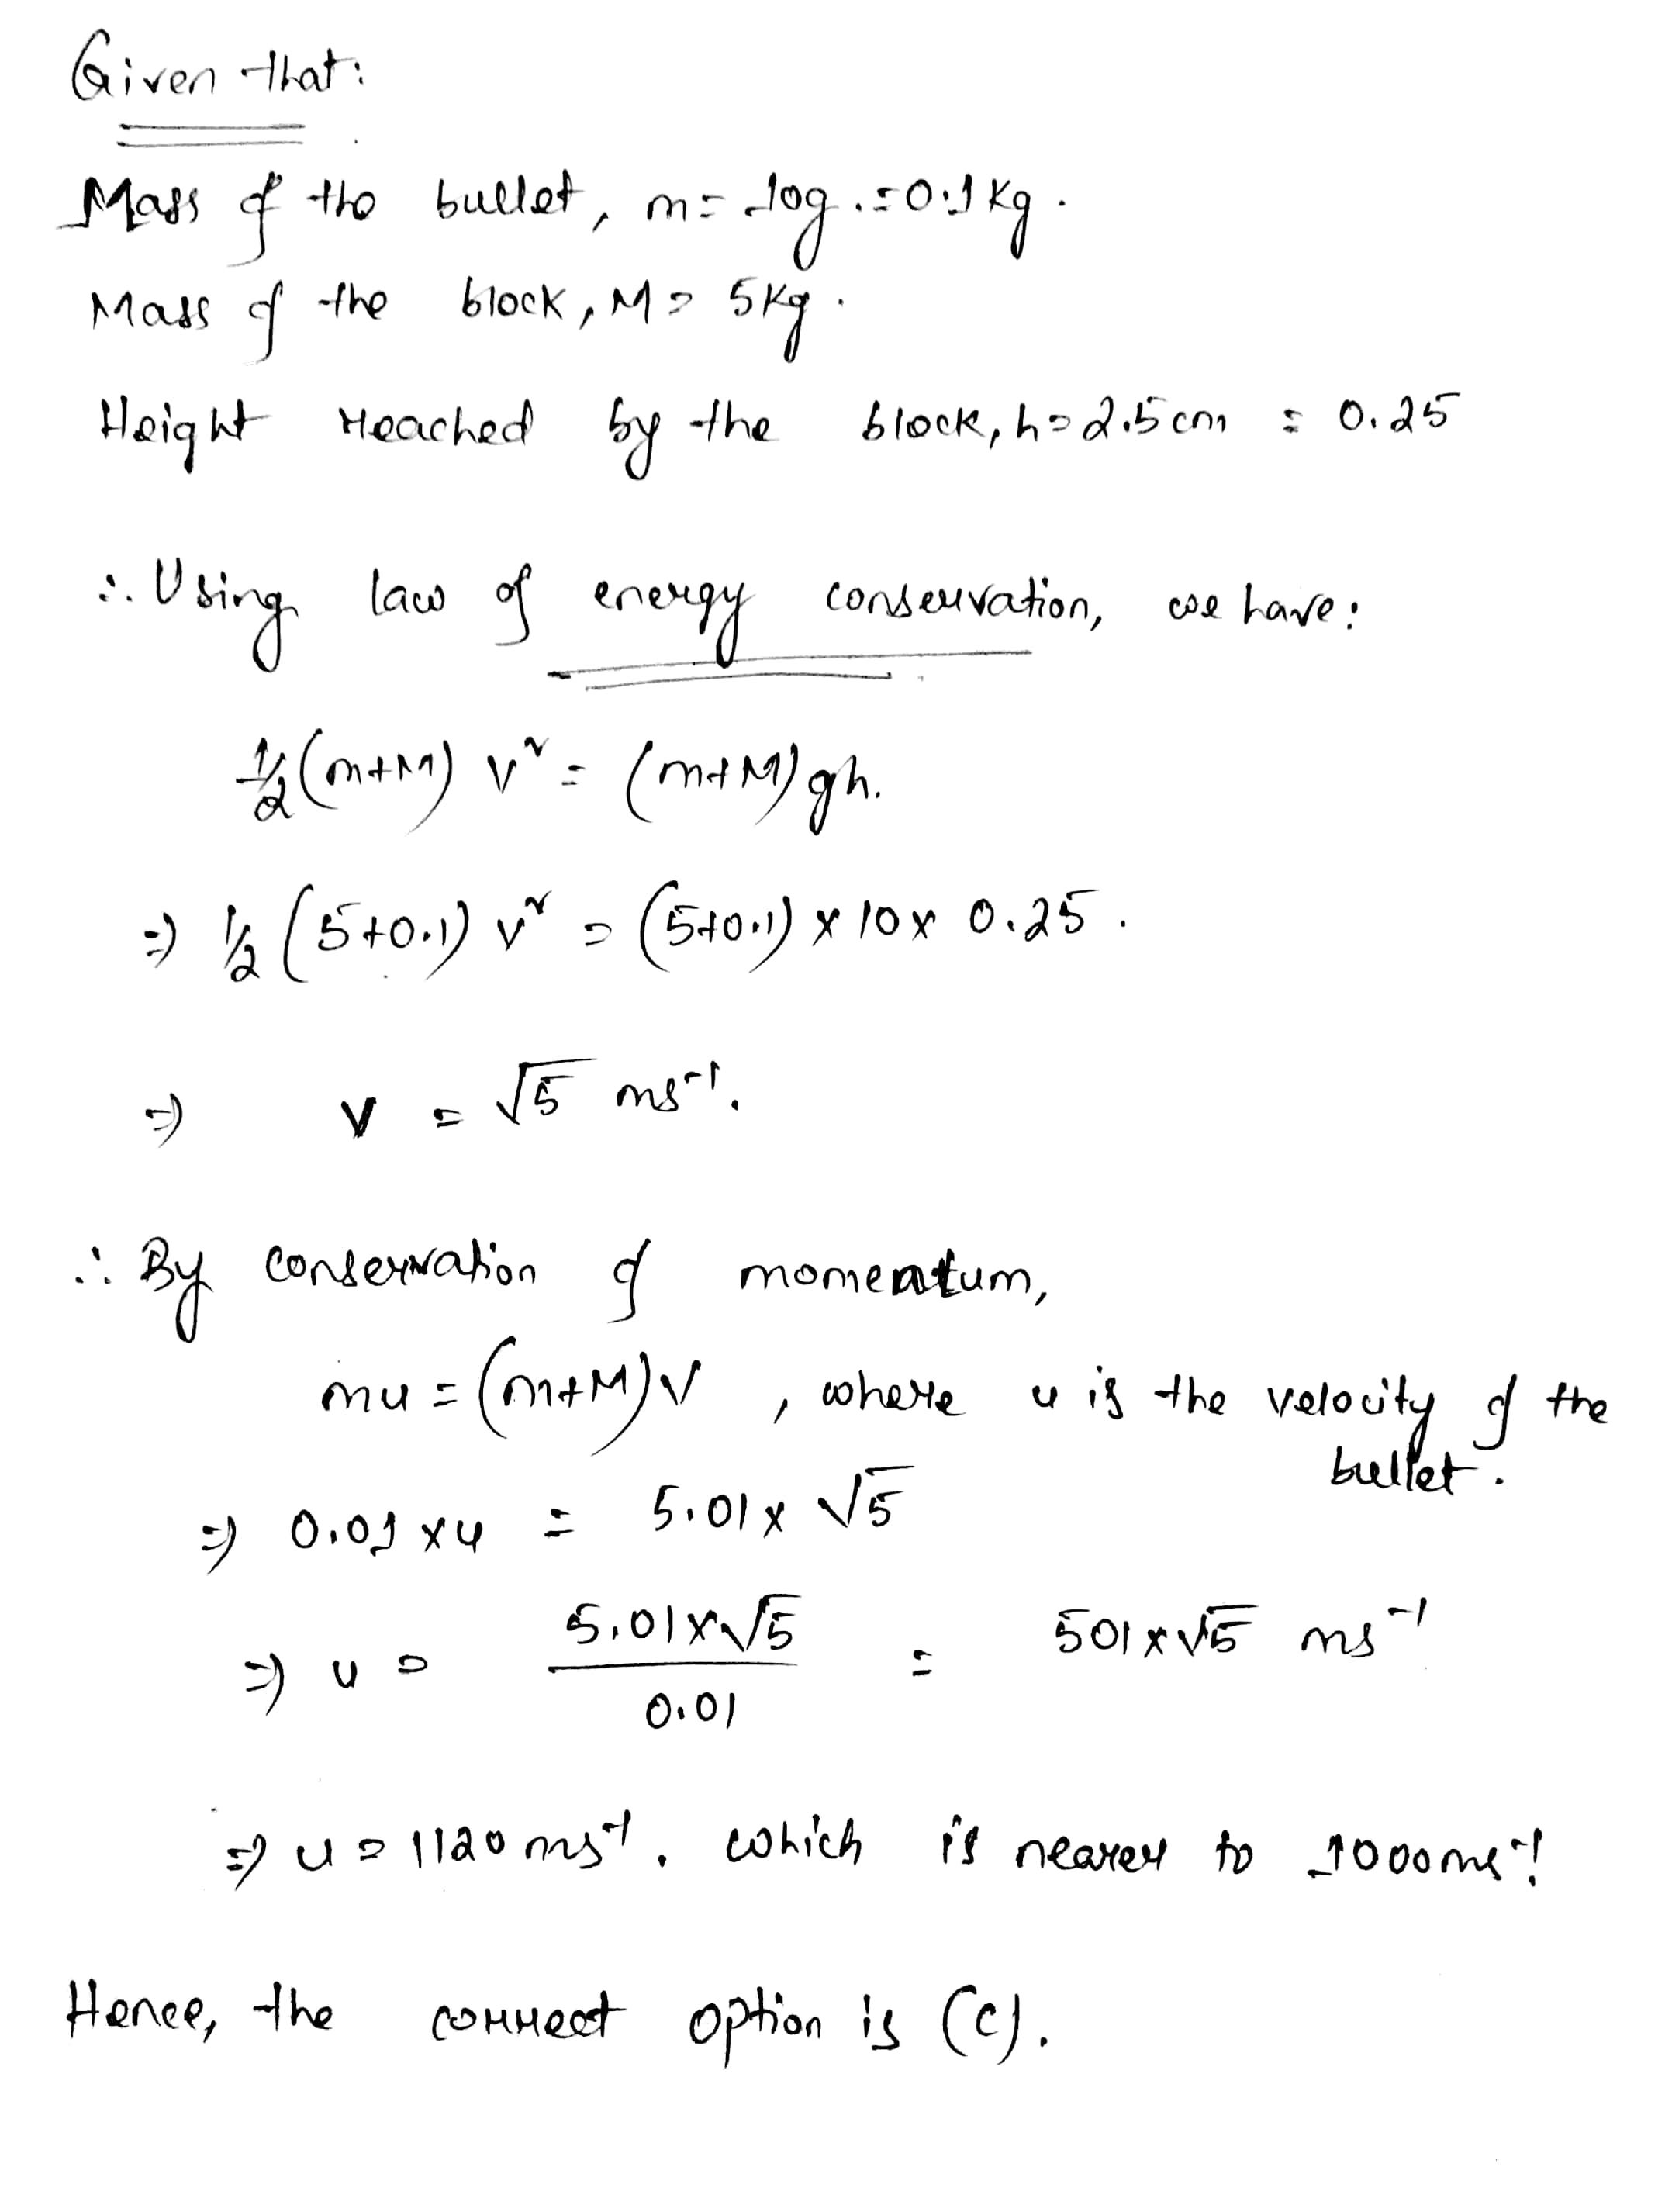 Given that:
Mass of the bullet, m = 10g. = 0.1 kg.
Mass of the block, M = 5kg.
Height reached by the block, h = 2.5 cm = 0.25
∴ Using law of energy conservation, we have:
1/2 (m+M) v² = (m+M) gh.
⇒ 1/2 (5+0.1) v² = (5+0.1) × 10 × 0.25.
⇒ v = √5 ms⁻¹.
∴ By conservation of momentum,
mu = (m+M) v , where u is the velocity of the
bullet.
⇒ 0.01 × u = 5.01 × √5
⇒ u = 5.01×√5 / 0.01 = 501×√5 ms⁻¹
⇒ u = 1120 ms⁻¹. which is nearer to 1000 ms⁻¹
Hence, the correct option is (c).